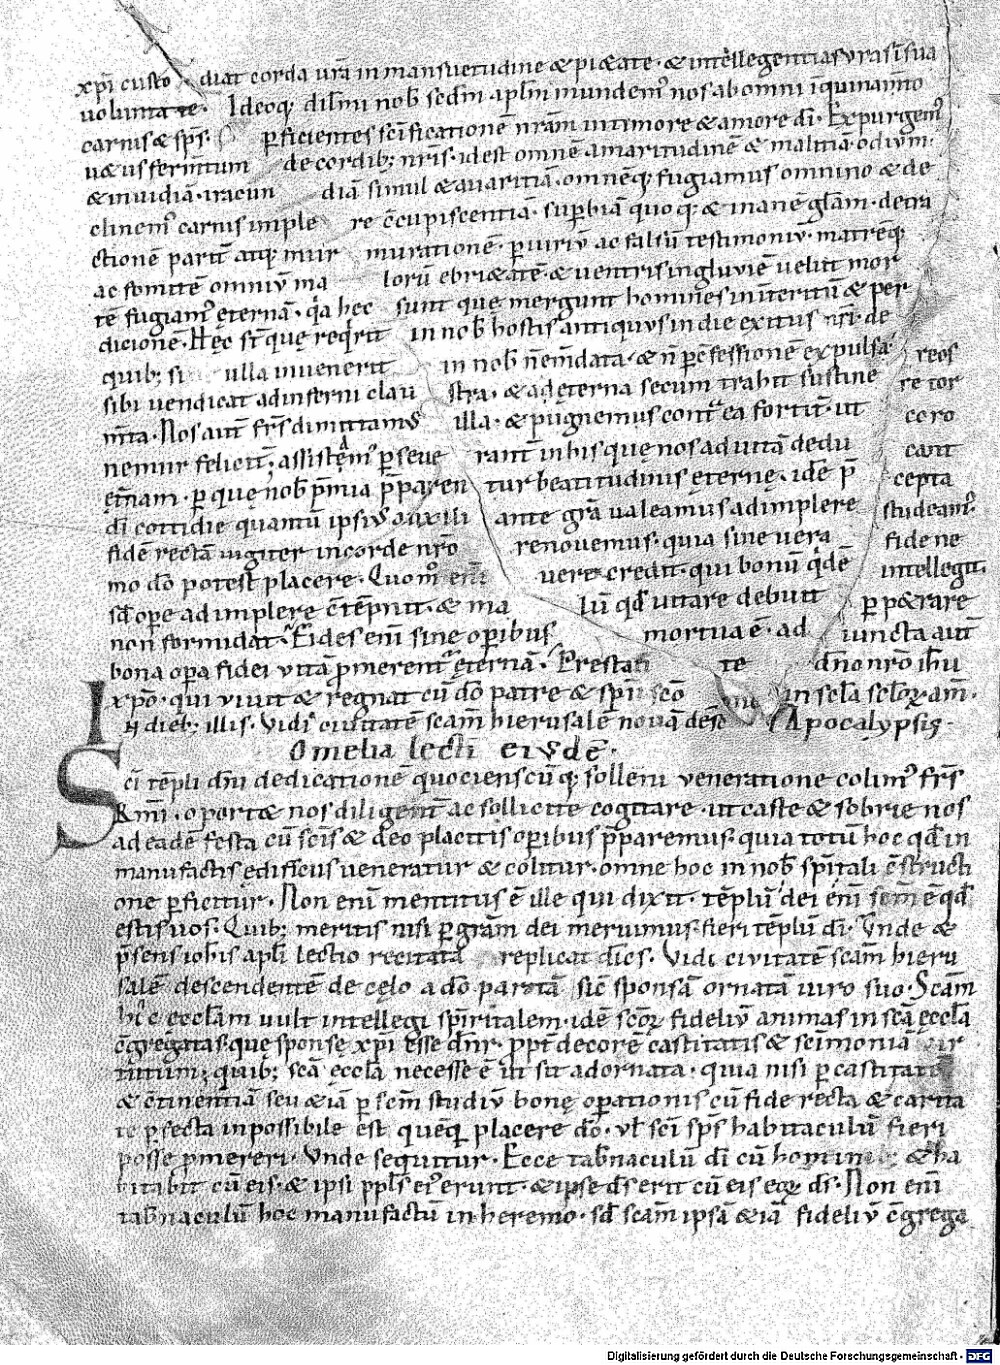 xp̄i custo diat corda ur̄a in mansuetudine & pi&ate · & intellegentias ur̄as in sua
uoluntate. Ideoq; dil̄mi nob̄ sc̄dm apl̄m mundem᷒ nos ab omni inquinam̄to
carnis & sp̄s. perficientes sc̄ificationē nr̄am in timore & amore dī. Expurgem᷒
u&us ferm̄tum de cordib; nr̄is · id est omnē amaritudinē & malitiā · odium ·
& inuidiā · iracun diā simul & auaritiā · omnēq; fugiamus omnino & de
clinem᷒ carnis imple re c̄cupiscentiā · sup̱biā quoq; & inanē gl̄am · detra
ctionē partū atq; mur murationē · p̱iuriū ac falsū testimoniū · matrēq;
ac fomitē omniū ma lorū ebri&atē · & uentris ingluuiē uelut mor
tē fugiam᷒ ęternā · qa hec sunt quę mergunt homines in interitū & per
dicionē · Hęc st̄ quę reqrit in nob̄ hostis antiquus in die exitus nr̄i · de
quib; si ulla inuenerit in nob̄ n̄ em̄data · & n̄ p̱ c̄fessionē expulsa reos
sibi uendicat ad inferni clau stra · & ad ęterna secum trahit sustine re tor
m̄ta · Nos aut̄ frs̄ dimittam᷒ illa · & pugnemus contra ea fortit̄ ut coro
nemur felicit̄; assistem᷒ p̱seue rant̄ in his que nos ad uitā dedu cant
ęt̄nam · p̱ quę nob̄ p̄mia p̄paren tur beatitudinis ęternę · idē p̄ cepta
dī cottidie quantū ipsius auxili ante gr̄a ualeamus adimplere studeam᷒
fidē rectā iugiter in corde nr̄o renouemus · quia sine uera fide ne
mo dō potest placere · Quom᷒ eni uere credit · qui bonū qđ ē intellegit ·
sđ ope adimplerę c̄tēpnit · & ma lū qđ uitare debuit p̱p&rare
non formidat · Fides eni sine op̱ibus mortua ē · ad iuncta aut̄
bona op̱a fidei uitā p̱merent ęternā · Prestan te dn̄o nr̄o ihū
xp̄o · qui uiuit & regnat cū dō patre & sp̄u sc̄o in sc̄la sc̄loꝝ am̄ ·
IN dieb; illis · Vidi ciuitatē sc̄am hierusalē nouā desc̄ Apocalypsis ·
Omelia lecti eiusdē ·
Sc̄i tēpli dn̄i dedicationē quocienscūq; sollemni ueneratione colim᷒ frs̄
k̄mi · oport& nos diligent̄ ac sollicite cogitare · ut caste & sobrie nos
ad eadē festa cū sc̄is & deo placitis op̱ibus p̄paremus · quia totū hoc qđ in
manufactis ędificiis ueneratur & colitur · omne hoc in nob̄ sp̄itali c̄structi
one p̱ficitur · Non eni mentitus ē ille qui dixit · tēplū dei eni sc̄m ē qđ
estis uos · Quib; meritis nisi p̱ gr̄am dei meruimus fieri tēplū dī · Vnde &
p̄sens iohis apl̄i lectio recitata replicat dicēs · Vidi ciuitatē sc̄am hieru
salē descendentē de cęlo a dō paratā sic̄ sponsā ornatā uiro suo · Sc̄am
hic eccl̄am uult intellegi sp̄iritalem · idē sc̄oꝝ fideliū animas in sc̄a ęccl̄a
c̄gregatas · que sponsę xp̄i esse dn̄r · ppt̄ decorē castitatis & sc̄imonia uir
tutum; quib; sc̄a ęccl̄a necesse ē ut sit adornata · quia nisi p̱ castitatē
& c̄tinentiā seu &iā p̱ sc̄m studiū bonę op̱ationis cū fide recta & carita
te p̱fecta inpossibile est quēq; placere dō · ul̄ sc̄i sp̄s habitaculū fieri
posse p̱mereri · Vnde sequitur · Ecce tab̄naculū dī cū hominib; & ha
bitabit cū eis · & ipsi ppl̄s ei᷒ erunt · & ipse ds̄ erit cū eis eoꝝ ds̄ · Non eni
tab̄naculū hoc manufactū in heremo · sđ sc̄am ipsā &iā fideliū c̄grega
Digitalisierung gefördert durch die Deutsche Forschungsgemeinschaft - DFG